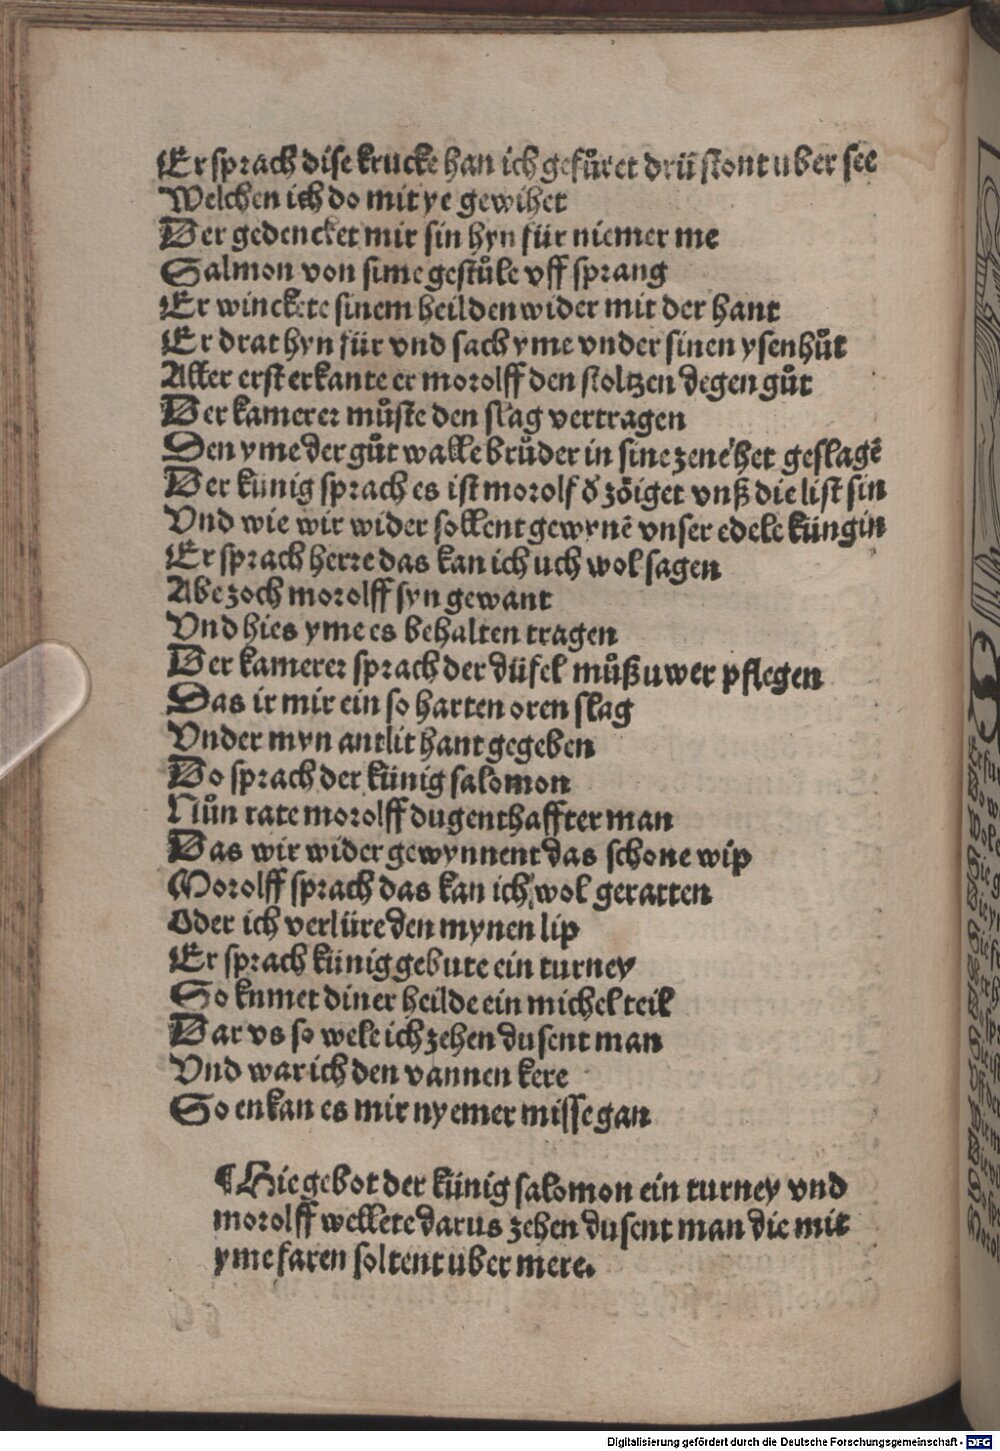 Er sprach dise krucke han ich gefuͦret drü stont uber see
Welchen ich do mit ye gewihet
Der gedencket mir sin hyn für niemer me
Salmon von sime gestuͦle vff sprang
Er winckete sinem heilden wider mit der hant
Er drat hyn für vnd sach yme vnder sinen ysenhuͦt
Aller erst erkante er morolff den stoltzen degen guͦt
Der kamerer muͦste den slag vertragen
Den yme der guͦt walle bruͦder in sine zene het geslagē
Der künig sprach es ist morolf d̄ zöiget vnß die list sin
Vnd wie wir wider sollent gewynē vnser edele küngin
Er sprach herre das kan ich uch wol sagen
Abe zoch morolff syn gewant
Vnd hies yme es behalten tragen
Der kamerer sprach der düfel muͦß uwer pflegen
Das ir mir ein so harten oren slag
Vnder myn antlit hant gegeben
Do sprach der künig salomon
Nuͦn rate morolff dugenthaffter man
Das wir wider gewynnent das schone wip
Morolff sprach das kan ich wol geratten
Oder ich verlüre den mynen lip
Er sprach künig gebute ein turney
So kumet diner heilde ein michel teil
Dar vs so wele ich zehen dusent man
Vnd war ich den vannen kere
So enkan es mir nyemer misse gan
¶ Hie gebot der künig salomon ein turney vnd
morolff wellete darus zehen dusent man die mit
yme faren soltent uber mere.
Digitalisierung gefördert durch die Deutsche Forschungsgemeinschaft - DFG